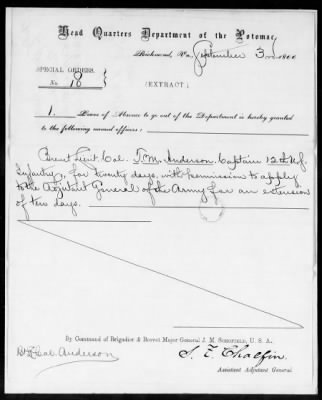 Head Quarters Department of the Potomac,
Richmond, Va., September 3rd 1866
SPECIAL ORDERS,
No. 18
(EXTRACT)
1. Leave of Absence to go out of the Department is hereby granted
to the following named officers:
Brevet Lieut. Col. T. M. Anderson, Captain 12th U.S.
Infantry, for twenty days, with permission to apply
to the Adjutant General of the Army for an extension
of ten days.
By Command of Brigadier & Brevet Major General J. M. SCHOFIELD, U. S. A.
Bvt Lt Col. Anderson
S. F. Chalfin,
Assistant Adjutant General.